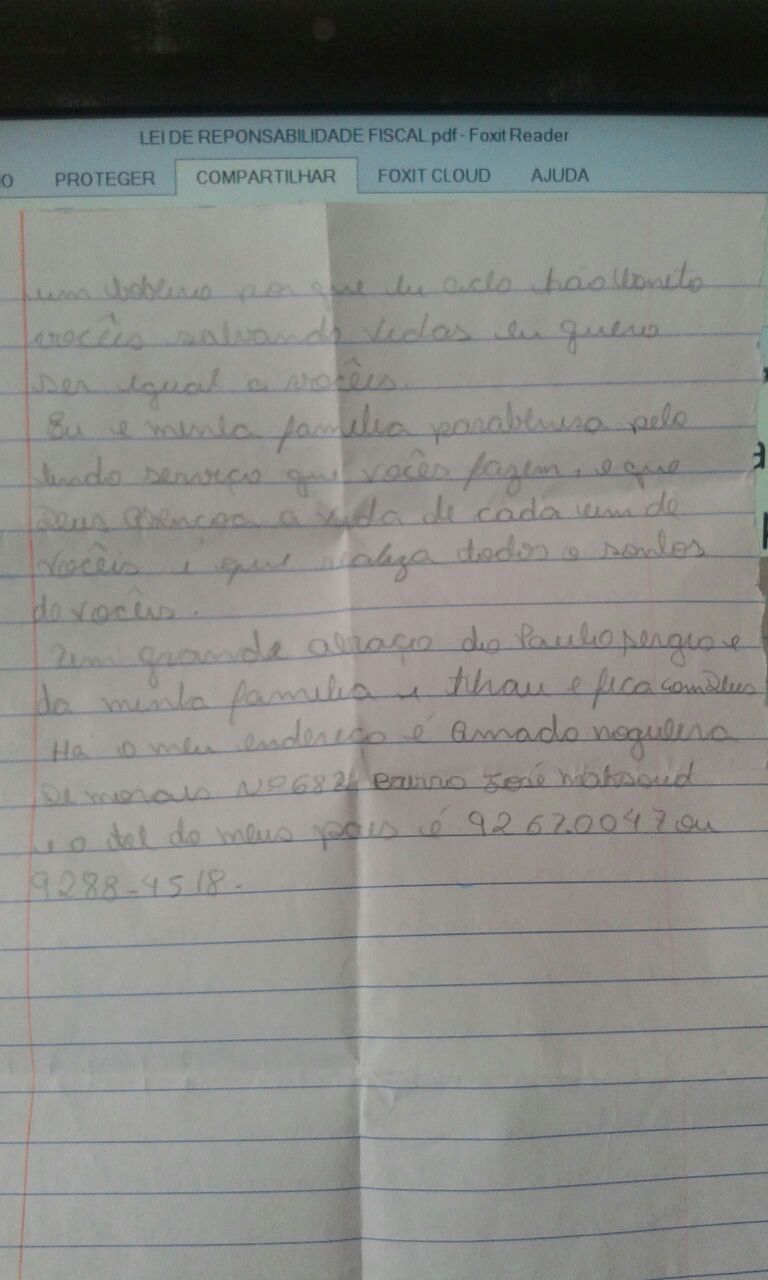 LEI DE REPONSABILIDADE FISCAL.pdf - Foxit Reader
IO PROTEGER COMPARTILHAR FOXIT CLOUD AJUDA
um por que eu acho tão bonito
vocêis salvando vidas eu quero
ser igual a vocêis.
Eu e minha familia parabenisa pelo
lindo serviço que vocês fazem, e que
Deus a vida de cada um de
vocêis e que todos o sonhos
do vocêis.
Um grande abraço do Paulo sergio e
da minha familia e tchau e fica com Deus
Ha o meu endereço é Amado nogueira
De morais Nº 682 Bairro José Maksoud
e o tel do meus pais é 92 67.0047 ou
9288-4518.